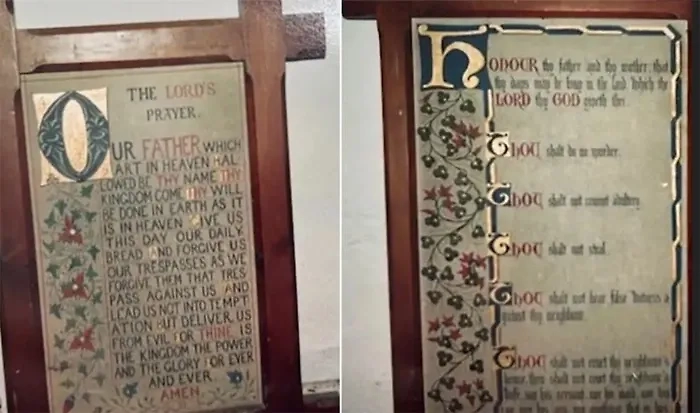 THE LORD'S
PRAYER.
OUR FATHER WHICH
ART IN HEAVEN HAL
LOWED BE THY NAME THY
KINGDOM COME THY WILL
BE DONE IN EARTH AS IT
IS IN HEAVEN GIVE US
THIS DAY OUR DAILY
BREAD AND FORGIVE US
OUR TRESPASSES AS WE
FORGIVE THEM THAT TRES
PASS AGAINST US AND
LEAD US NOT INTO TEMPT
ATION BUT DELIVER US
FROM EVIL FOR THINE IS
THE KINGDOM THE POWER
AND THE GLORY FOR EVER
AND EVER
AMEN.
HONOUR thy father and thy mother; that
thy days may be long in the land which the
LORD thy GOD giveth thee.
THOU shalt do no murder.
THOU shalt not commit adultery.
THOU shalt not steal.
THOU shalt not bear false witness a
gainst thy neighbour.
THOU shalt not covet thy neighbour's
house, thou shalt not covet thy neighbour's
wife, nor his servant, nor his maid, nor his